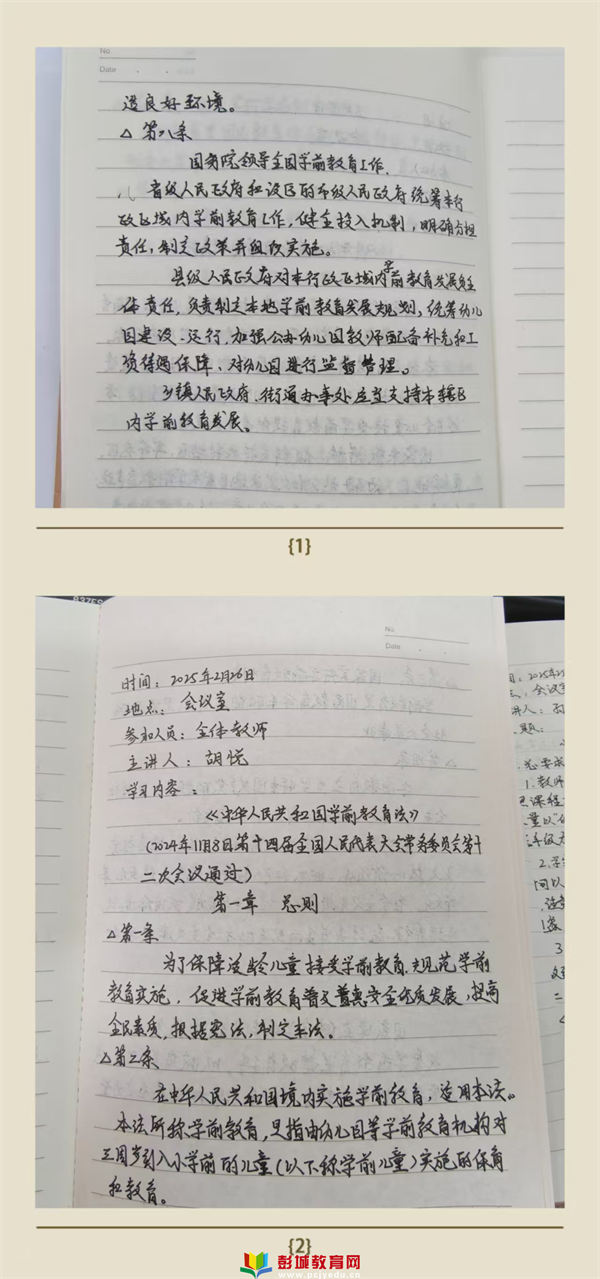 No
Date
造良好环境。
△ 第八条
国务院领导全国学前教育工作.
省级人民政府和设区的市级人民政府统筹本行
政区域内学前教育工作,健全投入机制,明确分担
责任,制定政策并组织实施。
县级人民政府对本行政区域内学前教育发展负主
体责任,负责制定本地学前教育发展规划,统筹幼儿
园建设、运行,加强公办幼儿园教师配备补充和工
资待遇保障,对幼儿园进行监督管理。
乡镇人民政府、街道办事处应当支持本辖区
内学前教育发展。
{1}
No
Date
时间:2025年2月26日
地点:会议室
参加人员:全体教师
主讲人:胡悦
学习内容:
《中华人民共和国学前教育法》
(2024年11月8日第十四届全国人民代表大会常务委员会第十
二次会议通过)
第一章 总则
△第一条
为了保障适龄儿童接受学前教育,规范学前
教育实施,促进学前教育普及普惠安全优质发展,提高
全民素质,根据宪法,制定本法。
△第二条
在中华人民共和国境内实施学前教育,适用本法。
本法所称学前教育,是指由幼儿园等学前教育机构对
三周岁到入小学前的儿童(以下称学前儿童)实施的保育
和教育。
{2}
彭城教育网
www.pcjyedu.cn